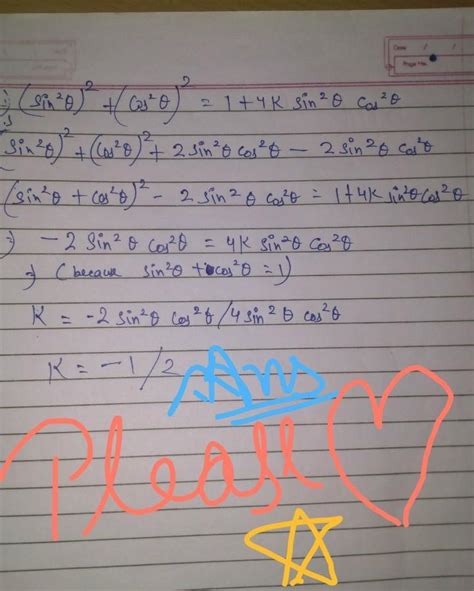 Date / /
Page No.
(sin²θ)² + (cos²θ)² = 1 + 4K sin²θ cos²θ
sin²θ)² + (cos²θ)² + 2 sin²θ cos²θ − 2 sin²θ cos²θ
(sin²θ + cos²θ)² − 2 sin²θ cos²θ = 1 + 4K sin²θ cos²θ
⇒ − 2 sin²θ cos²θ = 4K sin²θ cos²θ
⇒ (because sin²θ + cos²θ = 1)
K = −2 sin²θ cos²θ / 4 sin²θ cos²θ
K = −1/2
Ans
Please